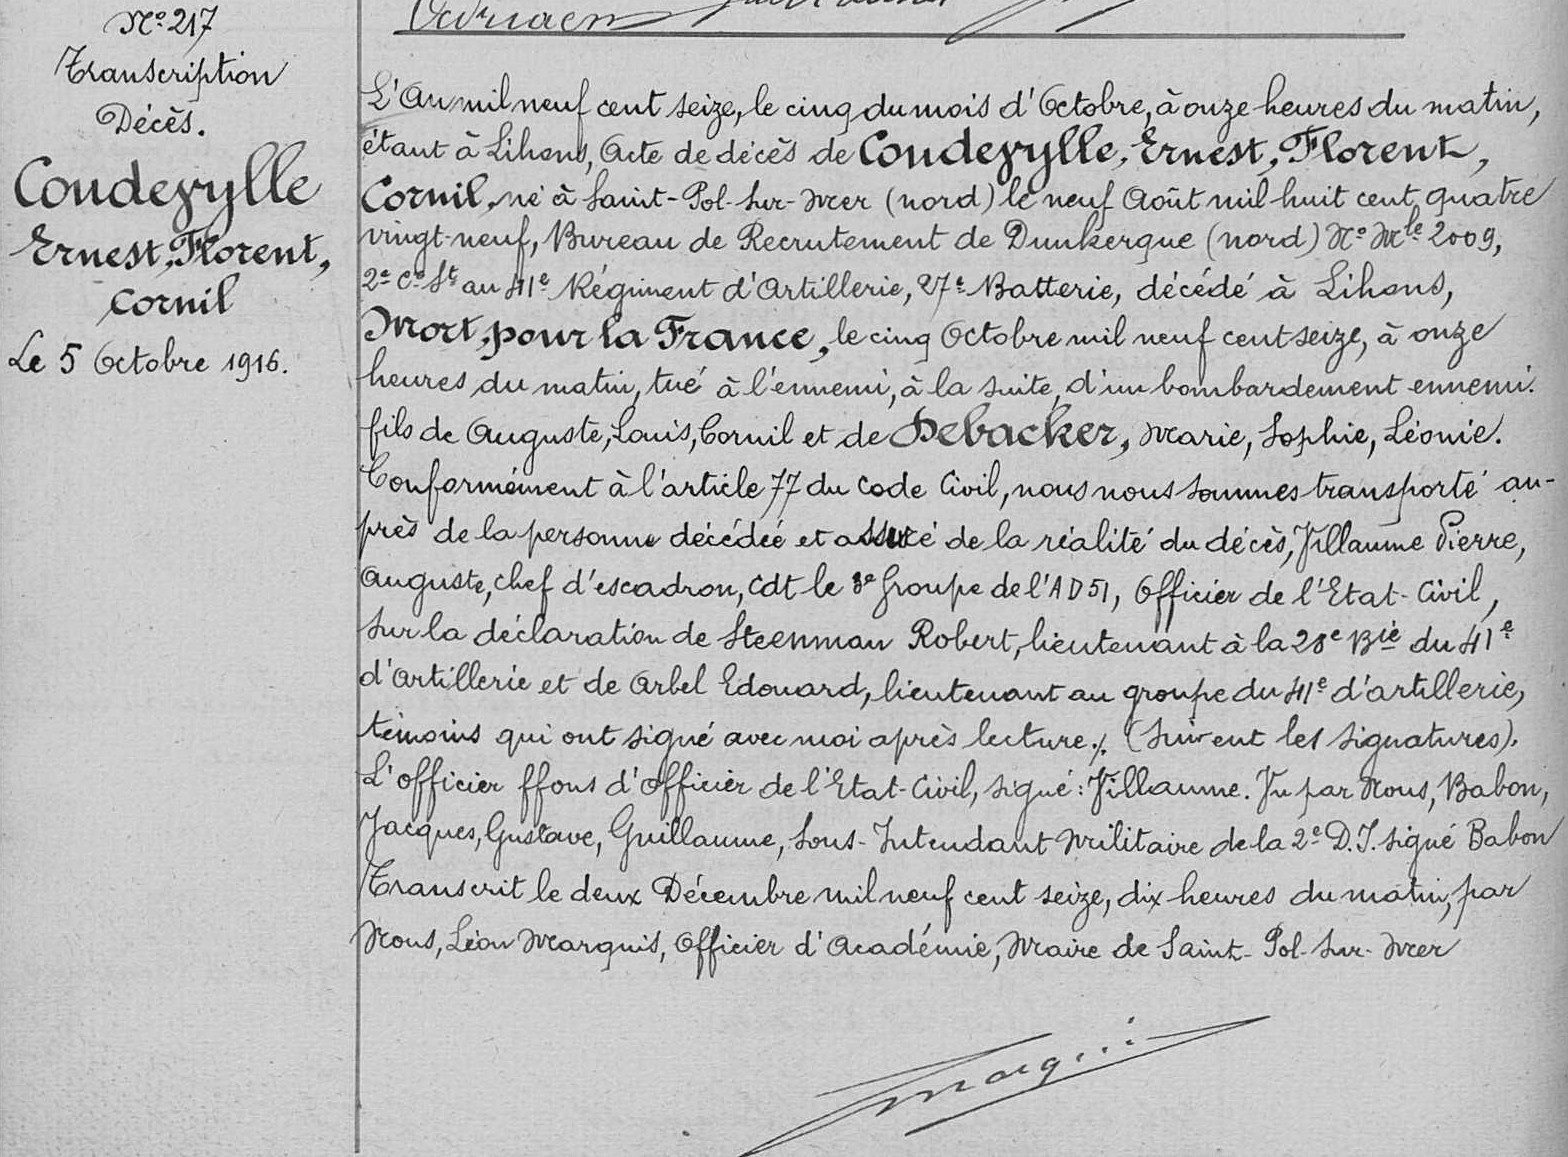 Nº 217
Transcription
Décès.
Coudevylle
Ernest, Florent,
Cornil
Le 5 Octobre 1916.
Adriaen
L'An mil neuf cent seize, le cinq du mois d'Octobre, à onze heures du matin,
étant à Lihons, Acte de décès de Coudevylle, Ernest, Florent,
Cornil, né à Saint-Pol-sur-Mer (nord) le neuf Août mil huit cent quatre
vingt-neuf, Bureau de Recrutement de Dunkerque (nord) Nº Mle 2009,
2e Cr St au 41e Régiment d'Artillerie, 27e Batterie, décédé à Lihons,
Mort pour la France, le cinq Octobre mil neuf cent seize, à onze
heures du matin, tué à l'ennemi, à la suite d'un bombardement ennemi.
fils de Auguste, Louis, Cornil et de Debacker, Marie, Sophie, Léonie.
Conformément à l'article 77 du Code Civil, nous nous sommes transporté au-
près de la personne décédée et assuré de la réalité du décès, Villaume Pierre,
Auguste, chef d'escadron, Cdt le 3e groupe de l'AD51, Officier de l'Etat-Civil,
sur la déclaration de Steenman Robert, lieutenant à la 28e Bie du 41e
d'Artillerie et de Arbel Edouard, lieutenant au groupe du 41e d'artillerie,
témoins qui ont signé avec moi après lecture ./. (suivent les signatures).
L'officier ffons d'Officier de l'Etat-Civil, signé : Villaume. Vu par Nous, Babon,
Jacques, Gustave, Guillaume, Sous-Intendant Militaire de la 2e D.I. signé Babon
Transcrit le deux Décembre mil neuf cent seize, dix heures du matin, par
Nous, Léon Marquis, Officier d'Académie, Maire de Saint-Pol-sur-Mer
Marquis